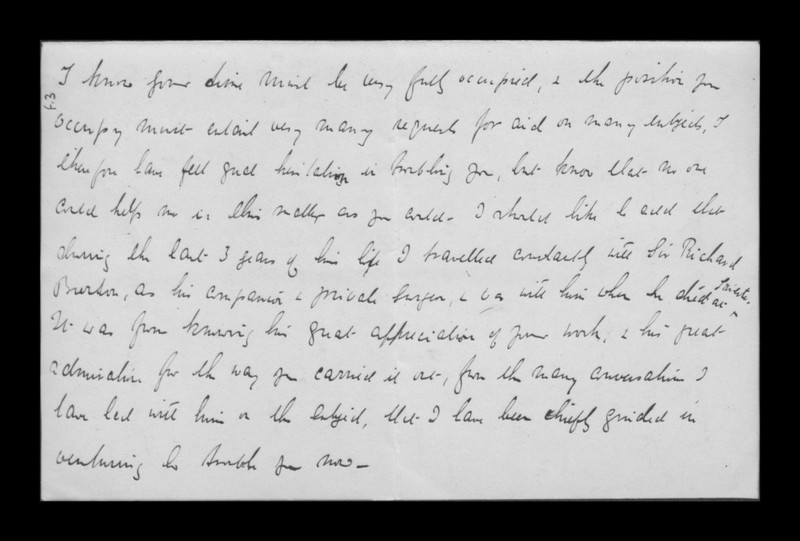 I know your time must be very fully occupied, & the position you
f.3
occupy must entail very many requests for aid on many subjects, I
therefore have felt great hesitation in troubling you, but know that no one
could help me in this matter as you could - I should like to add that
during the last 3 years of his life I travelled constantly with Sir Richard
Burton, as his companion & private surgeon, & was with him when he died at Trieste.
It was from knowing his great appreciation of your work, & his great
admiration for the way you carried it out, from the many conversations I
have had with him on the subject, that I have been chiefly guided in
venturing to trouble you now -